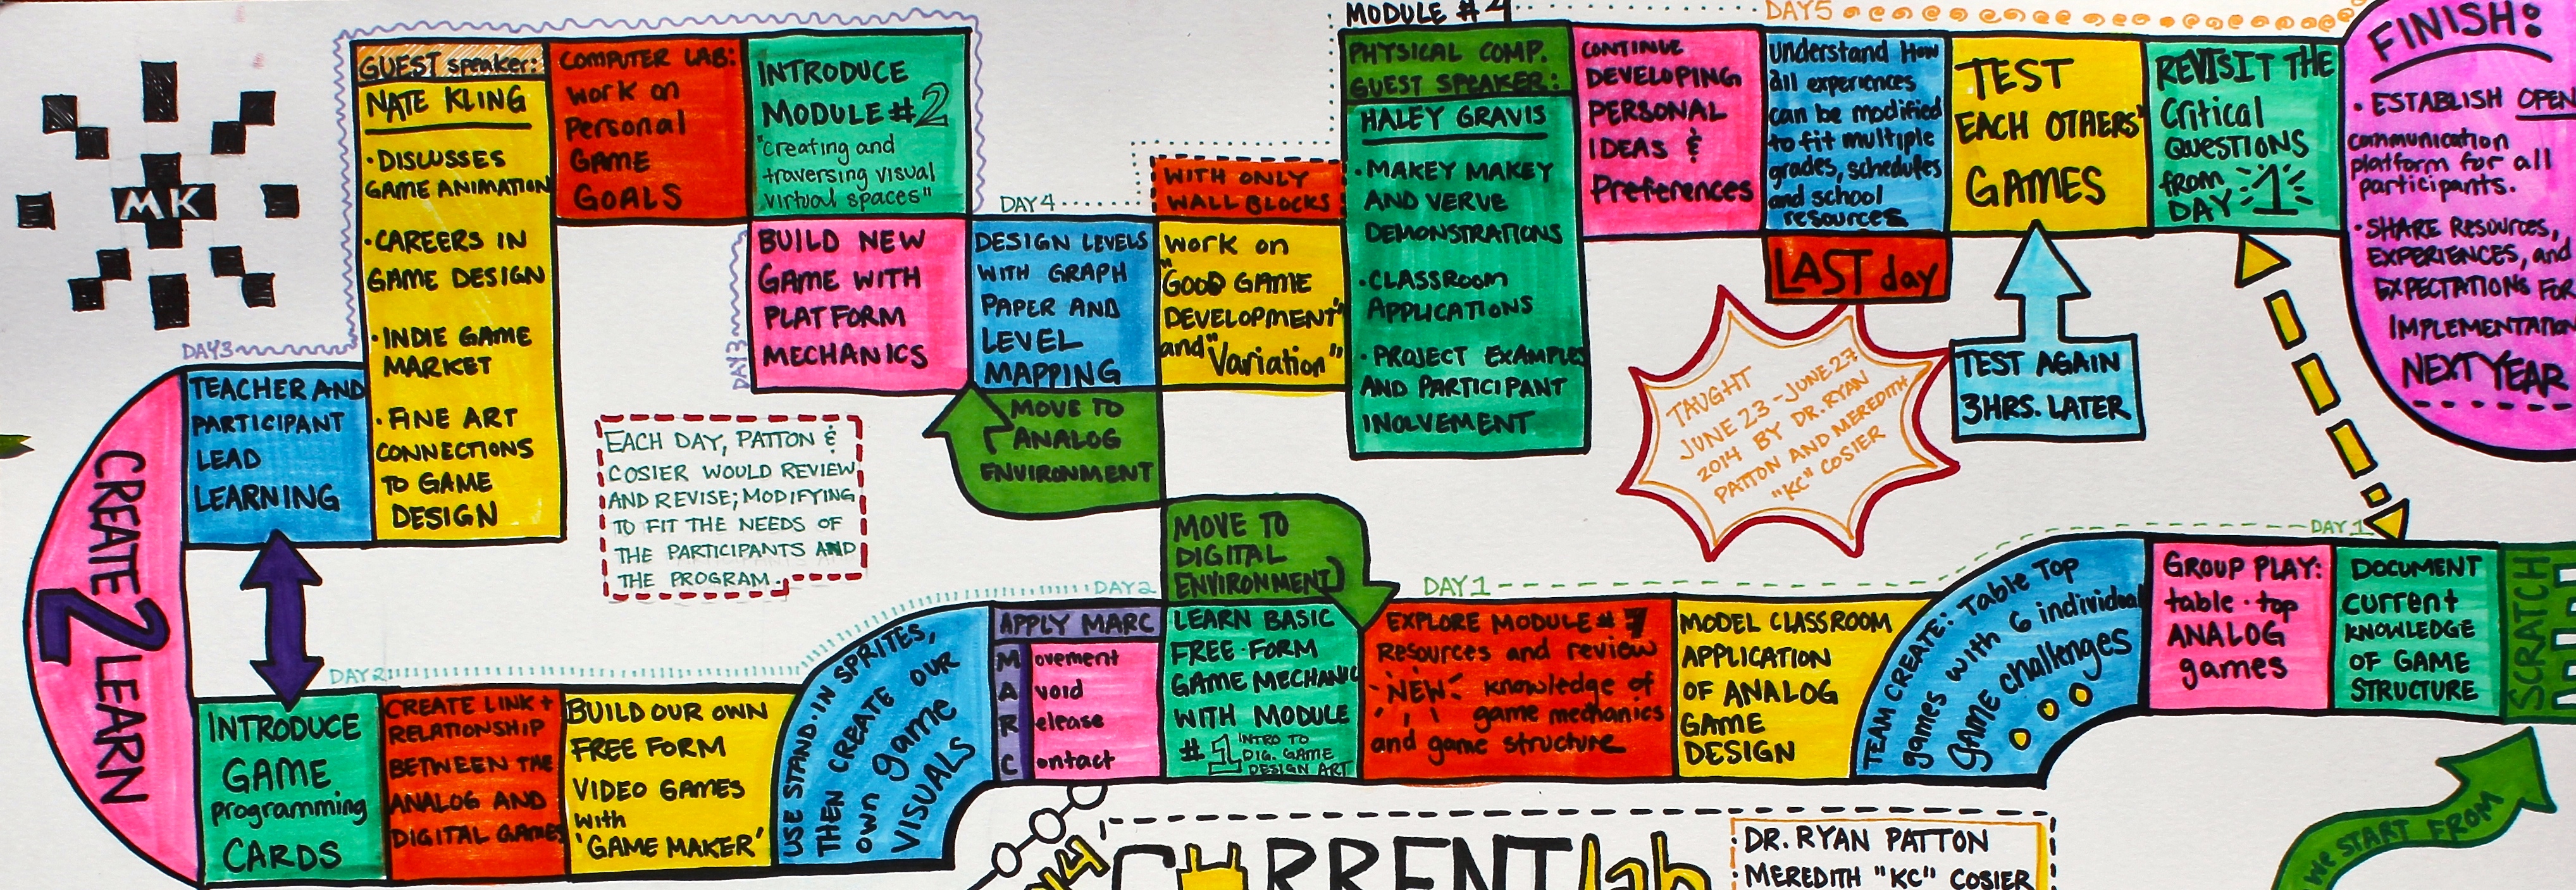 MODULE #4
DAY5
FINISH:
• ESTABLISH OPEN
communication
platform for all
participants.
• SHARE Resources,
EXPERIENCES, and
EXPECTATIONS FOR
IMPLEMENTATION
NEXT YEAR
MK
GUEST speaker:
NATE KLING
• DISCUSSES
GAME ANIMATION
• CAREERS IN
GAME DESIGN
• INDIE GAME
MARKET
• FINE ART
CONNECTIONS
TO GAME
DESIGN
COMPUTER LAB:
work on
Personal
GAME
GOALS
INTRODUCE
MODULE #2
"creating and
traversing visual
virtual spaces"
BUILD NEW
GAME WITH
PLATFORM
MECHANICS
DAY3
DAY4
DESIGN LEVELS
WITH GRAPH
PAPER AND
LEVEL
MAPPING
WITH ONLY
WALL BLOCKS
work on
"GOOD GAME
DEVELOPMENT"
and "Variation"
PHYSICAL COMP.
GUEST SPEAKER:
HALEY GRAVIS
• MAKEY MAKEY
AND VERVE
DEMONSTRATIONS
• CLASSROOM
APPLICATIONS
• PROJECT EXAMPLES
AND PARTICIPANT
INOLVEMENT
CONTINUE
DEVELOPING
PERSONAL
IDEAS &
Preferences
understand How
all experiences
can be modified
to fit multiple
grades, schedules
and school
resources
LAST day
TEST
EACH OTHERS'
GAMES
REVISIT THE
Critical
QUESTIONS
from
DAY 1
TEST AGAIN
3HRS. LATER
TAUGHT
JUNE 23 - JUNE 27
2014 BY DR. RYAN
PATTON AND MEREDITH
"KC" COSIER
DAY3
TEACHER AND
PARTICIPANT
LEAD
LEARNING
CREATE
2
LEARN
EACH DAY, PATTON &
COSIER WOULD REVIEW
AND REVISE; MODIFYING
TO FIT THE NEEDS OF
THE PARTICIPANTS AND
THE PROGRAM.
MOVE TO
ANALOG
ENVIRONMENT
MOVE TO
DIGITAL
ENVIRONMENT
DAY2
INTRODUCE
GAME
programming
CARDS
CREATE LINK +
RELATIONSHIP
BETWEEN THE
ANALOG AND
DIGITAL GAMES
BUILD OUR OWN
FREE FORM
VIDEO GAMES
with
'GAME MAKER'
USE STAND-IN SPRITES,
THEN CREATE OUR
own game
VISUALS
DAY2
APPLY MARC
Movement
Avoid
Release
Contact
LEARN BASIC
FREE-FORM
GAME MECHANIC
WITH MODULE
#1 INTRO TO
DIG. GAME
DESIGN ART
DAY1
EXPLORE MODULE #
Resources and review
"NEW" knowledge of
game mechanics
and game structure
MODEL CLASSROOM
APPLICATION
OF ANALOG
GAME
DESIGN
TEAM CREATE: Table Top
games with 6 individual
GAME challenges
DAY1
GROUP PLAY:
table-top
ANALOG
games
DOCUMENT
current
KNOWLEDGE
OF GAME
STRUCTURE
SCRATCH
WE START FROM
CURRENTlab
DR. RYAN PATTON
MEREDITH "KC" COSIER